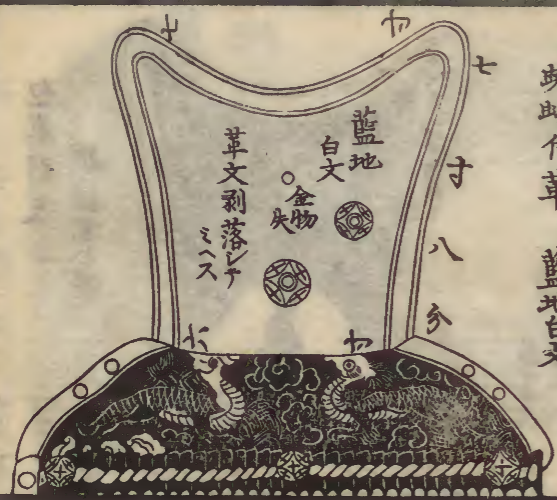 付革 藍地白文
七寸八分
藍地
白文
金物
失
革文剥落シテ
ミヘス